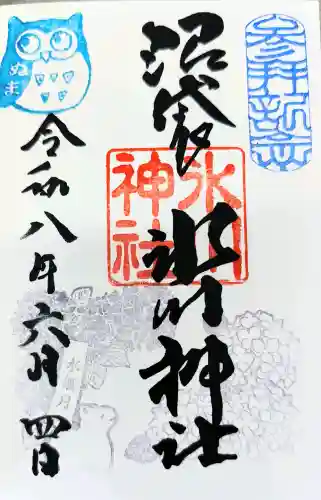 参拝記念
沼袋
氷川神社
氷川
神社
令和八年六月四日
ぬま
水無月